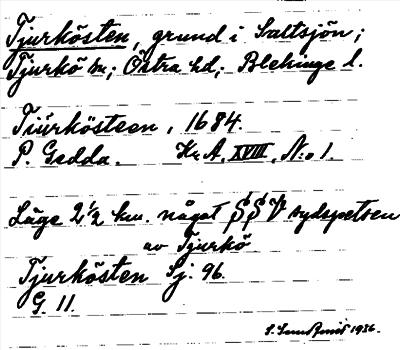 Tjurkösten, grund i Saltsjön;
Tjurkö sn; Östra hd; Blekinge l.
Tiürkösteen, 1684.
P. Gedda. Kr. A. XVIII, N:o 1.
Läge 2½ km. något SSV sydspetsen
av Tjurkö
Tjurkösten Sj. 96.
G. 11.
1936.